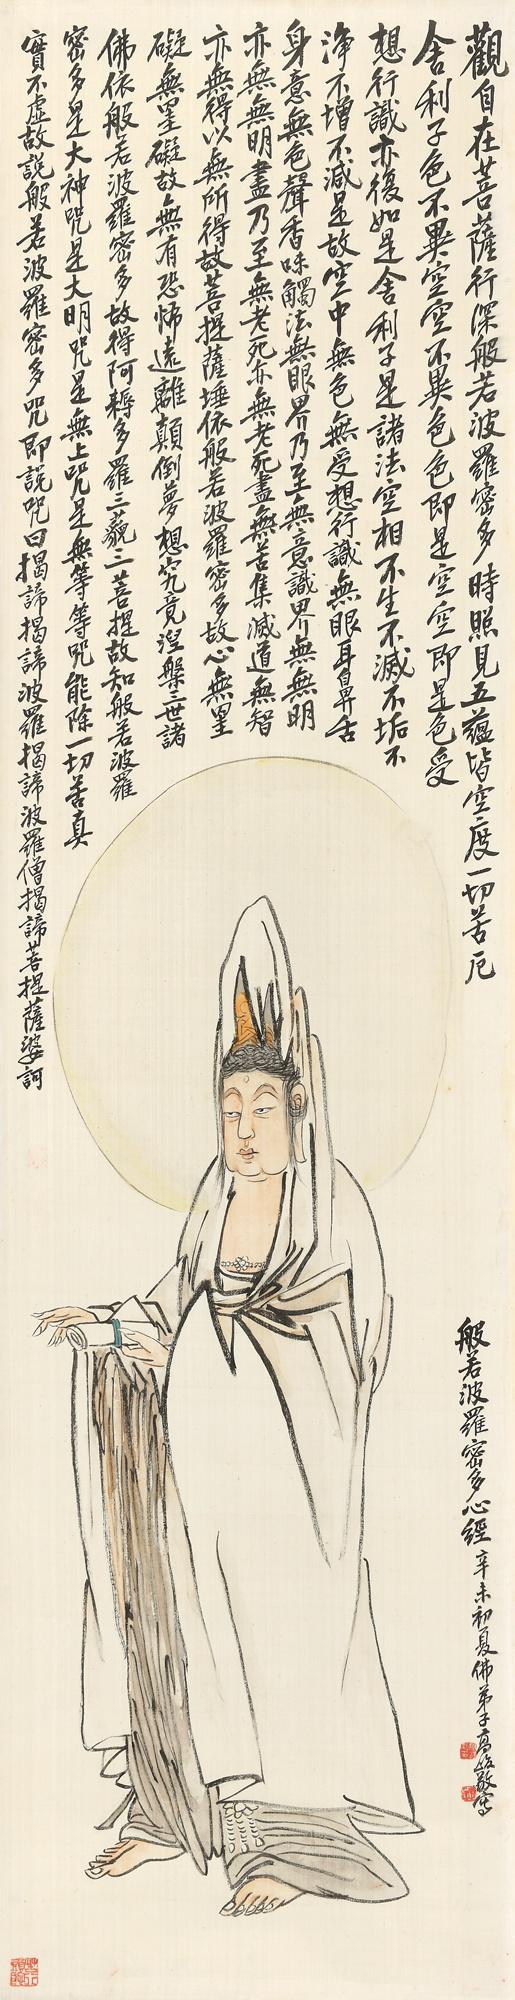 觀自在菩薩行深般若波羅密多時照見五蘊皆空度一切苦厄
舍利子色不異空空不異色色即是空空即是色受
想行識亦復如是舍利子是諸法空相不生不滅不垢不
淨不增不減是故空中無色無受想行識無眼耳鼻舌
身意無色聲香味觸法無眼界乃至無意識界無無明
亦無無明盡乃至無老死亦無老死盡無苦集滅道無智
亦無得以無所得故菩提薩埵依般若波羅密多故心無罣
礙無罣礙故無有恐怖遠離顛倒夢想究竟涅槃三世諸
佛依般若波羅密多故得阿耨多羅三藐三菩提故知般若波羅
密多是大神咒是大明咒是無上咒是無等等咒能除一切苦真
實不虛故說般若波羅密多咒即說咒曰揭諦揭諦波羅揭諦波羅僧揭諦菩提薩婆訶
般若波羅密多心經 辛未初夏佛弟子高敬寫